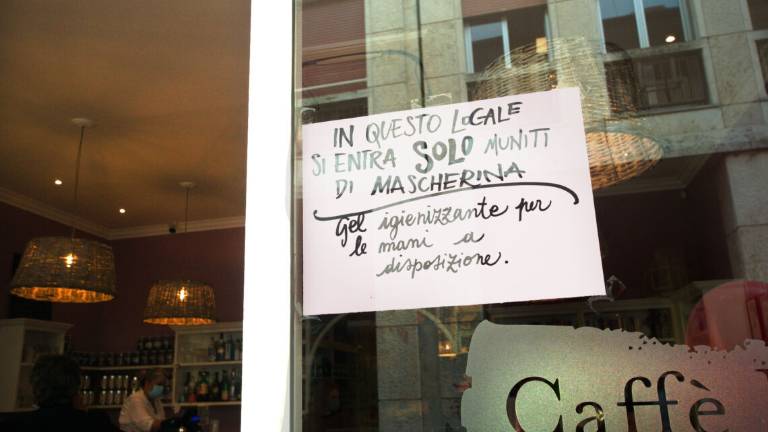 IN QUESTO LOCALE
SI ENTRA SOLO MUNITI
DI MASCHERINA
Gel igienizzante per
le mani a
disposizione.
Caffè